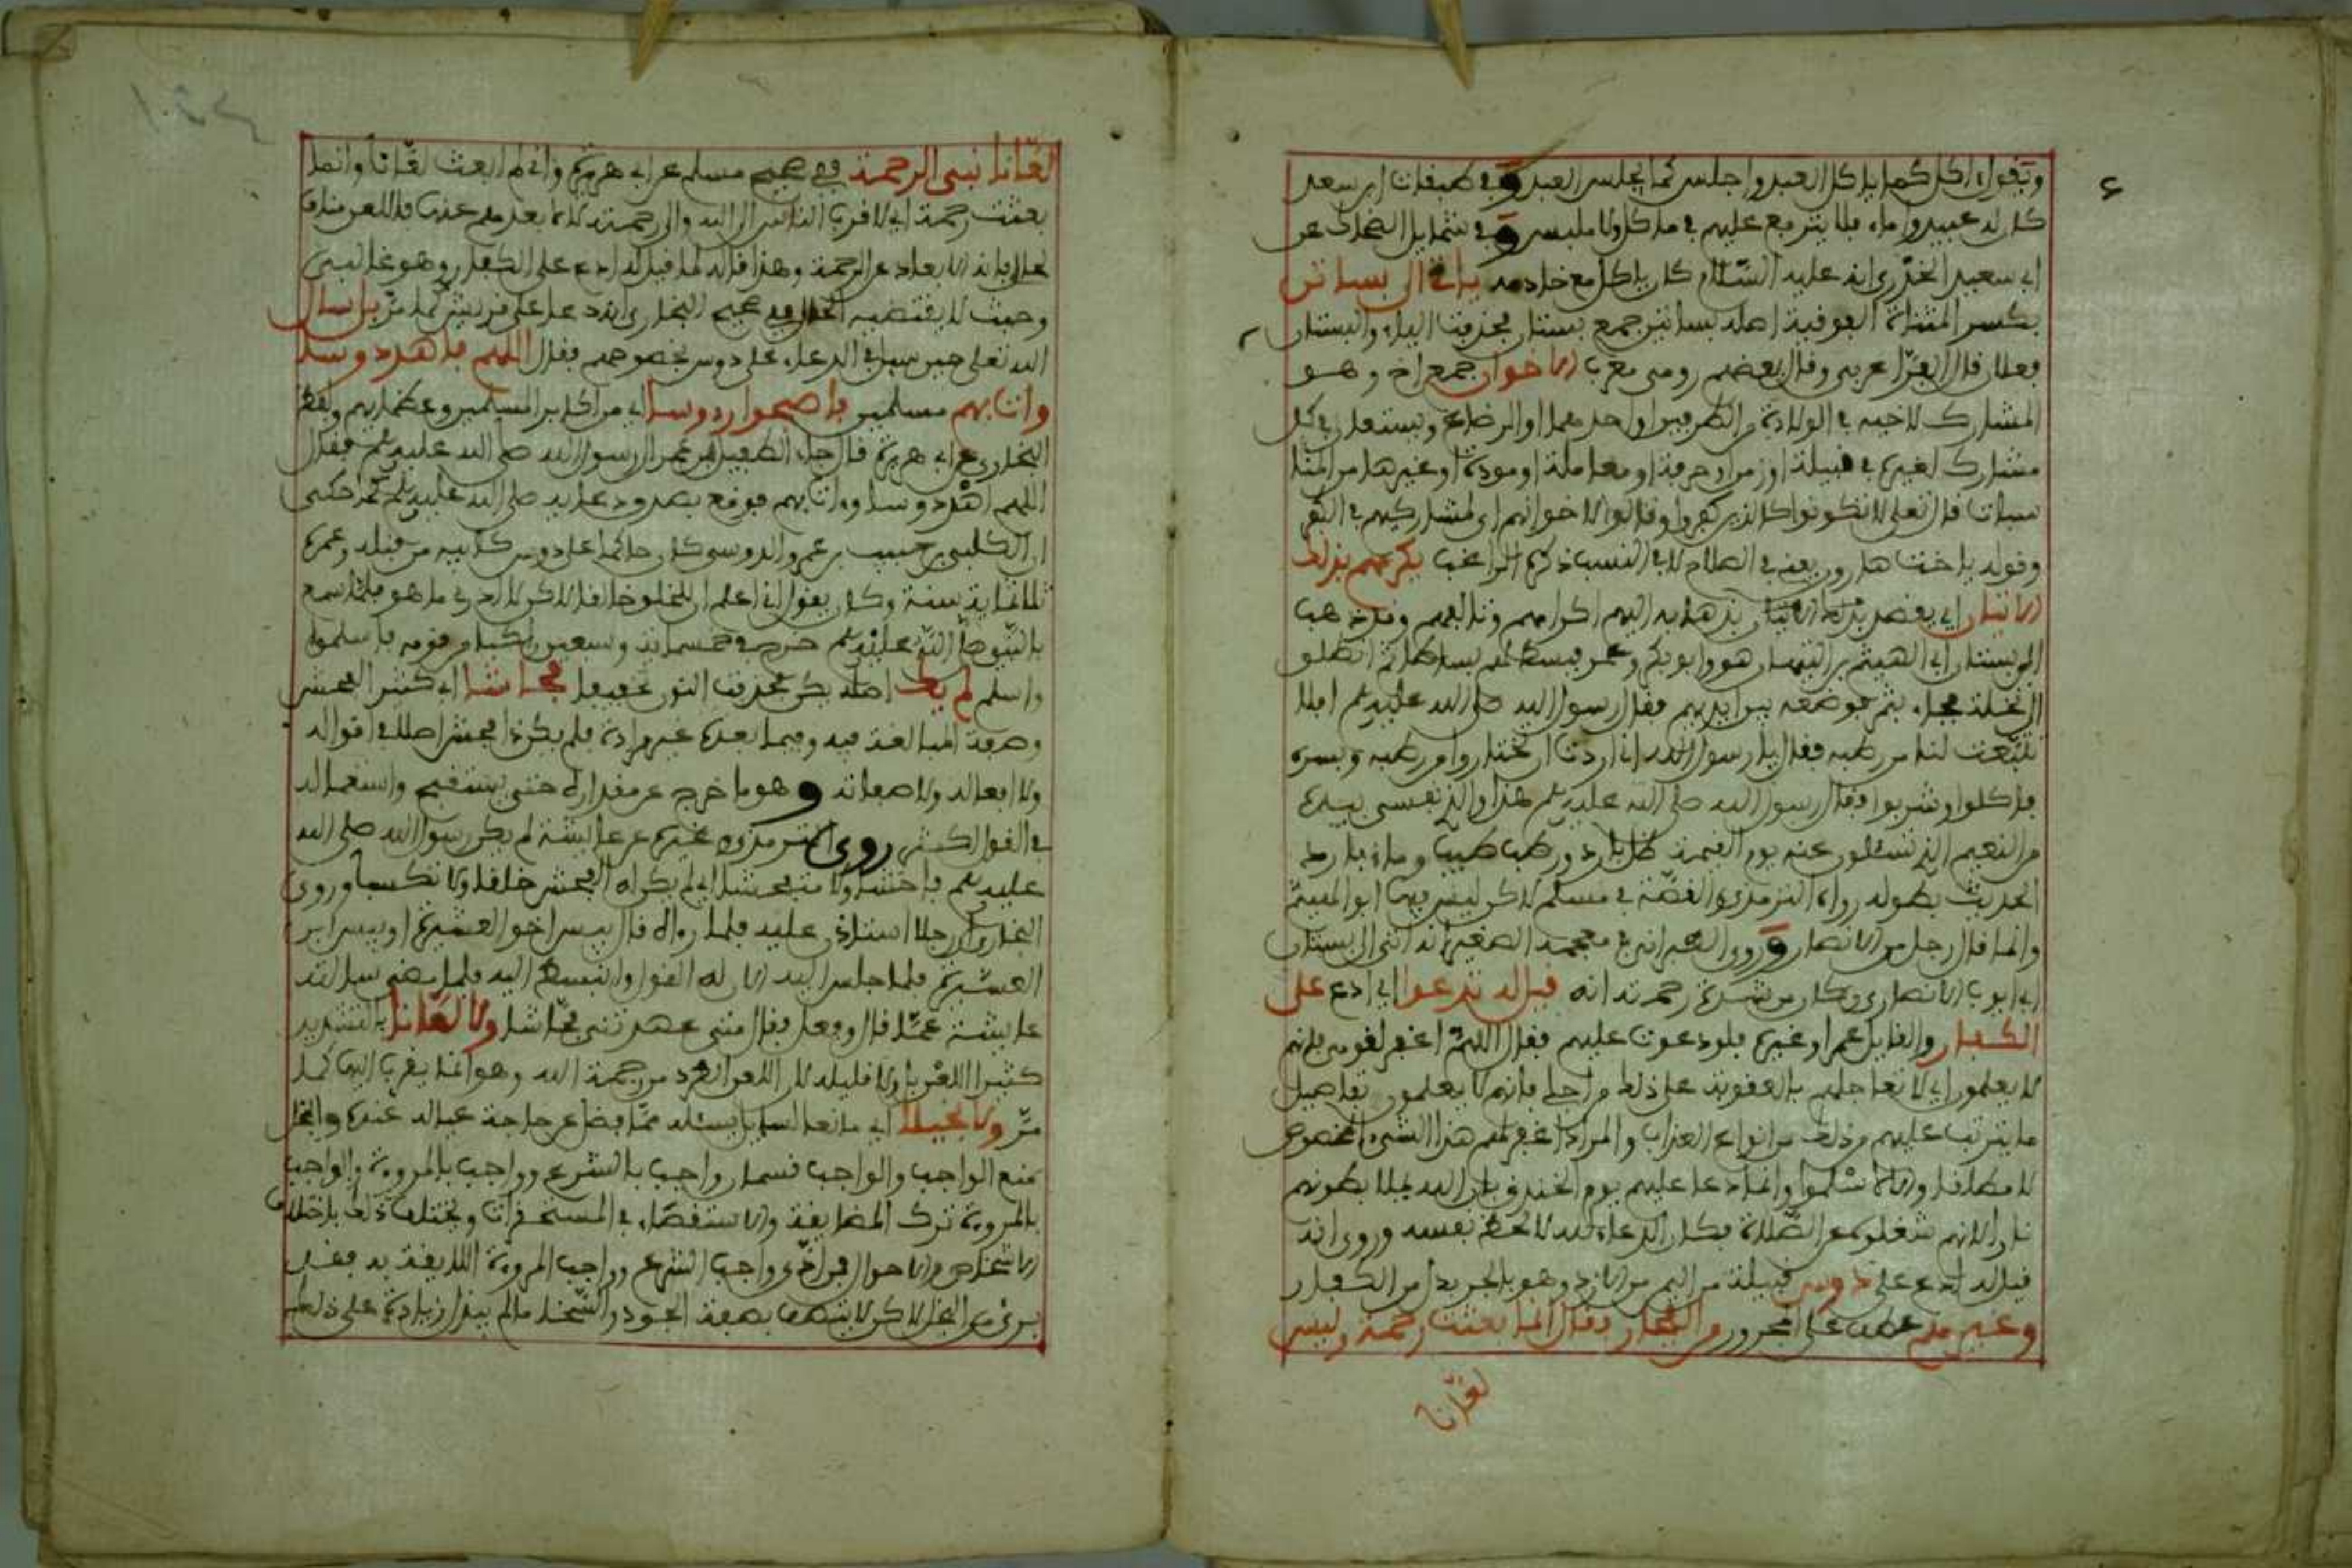 ويقول آكل كما ياكل العبد واجلس كما يجلس العبد وفي طبقات ابن سعد
كان له عبيد واماء فلا يترفع عليهم في ماكل ولا ملبس وفي شمايل الضحاك عن
ابي سعيد الخدري انه عليه السلام كان ياكل مع خادمه ياتي الى بساتن
بكسر المثناة الفوقية اصله بساتين جمع بستان بحذف الياء والبستان
فعلان قال الفراء عربي وقال بعضهم رومي معرب الاخوان جمع اخ وهو
المشارك لاخيه في الولادة من الطرفين او احدهما او الرضاع ويستعار في كل
مشارك لغيره في قبيلة او زمن او حرفة او معاملة او مودة او غيرها من المنا
سبات قال تعلى لا تكونوا كالذين كفروا وقالوا لاخوانهم اي لمشاركيهم في الكفر
وقوله يا اخت هارون يعني في الصلاح لا في النسب ذكره الراغب يكرمهم بذلك
الاتيان اي يقصد بذلك الاتيان بذهابه اليهم اكرامهم وتالفهم وقد ذهب
الى بستان ابي الهيثم بن التيهان هو وابو بكر وعمر فبسط لهم بساطا ثم انطلق
الى نخلة فجاء بقنو فوضعه بين ايديهم فقال رسول الله صلى الله عليه وسلم افلا
تنقيت لنا من رطبه فقال يا رسول الله اني اردت ان تختاروا من رطبه وبسره
فاكلوا وشربوا فقال رسول الله صلى الله عليه وسلم هذا والذي نفسي بيده
من النعيم الذي تسئلون عنه يوم القيمة ظل بارد ورطب طيب وماء بارد
الحديث بطوله رواه الترمذي والقصة في مسلم لاكن ليس فيها ابو الهيثم
وانما قال رجل من الانصار وروى الطبراني في معجمه الصغير انه اتى الى بستان
ابي ايوب الانصاري وكان من شدة رحمته انه قيل له تدعوا اي ادع على
الكفار والقايل عمر او غيره فلو دعوت عليهم فقال اللهم اغفر لقومي فانهم
لا يعلمون اي لا تعاجلهم بالعقوبة على ذلك من اجلي فانهم لا يعلمون تفاصيل
ما يترتب عليهم من ذلك من انواع العذاب والمراد اغفر لهم هذا الشيء المخصوص
لا مطلقا والا لاسلموا وانما دعا عليهم يوم الخندق بان الله يملا بطونهم
نارا لانهم شغلوه عن الصلاة فكان الدعاء لله لا لحظ نفسه وروي انه
قيل له ادع على دوس قبيلة من اليمن من الازد وهو بالجر بدل من الكفار
وغيرهم عطف على المجرور من الكفار وقال انما بعثت رحمة وليس
لعانا
لعانا نبي الرحمة في صحيح مسلم عن ابي هريرة واني لم ابعث لعانا وانما
بعثت رحمة اي لاقرب الناس الى الله والى رحمته لا لابعدهم عنها فاللعن مناف
لحالي فانه الابعاد عن الرحمة وهذا قاله لما قيل له ادع على الكفار وهو غالبي
وحيث لا يقتضيه الحال ففي صحيح البخاري انه دعا على قريش كما مر بل سال
الله تعلى حين سيل في الدعاء على دوس بخصوصهم فقال اللهم اهد دوسا
وات بهم مسلمين فاصبحوا رءوسا اي من اكابر المسلمين وعظمايهم ولفظ
البخاري عن ابي هريرة قال جاء الطفيل بن عمر الى رسول الله صلى الله عليه وسلم فقال
اللهم اهد دوسا وات بهم فوقع بصدق دعايه صلى الله عليه وسلم حكى
ابن الكلبي حبيب بن عمرو الدوسي كان حاكما على دوس كابيه من قبله وعمره
ثلاثماية سنة وكان يقول اني اعلم ان للخلق خالقا لاكن لا ادري ما هو فلما سمع
بالنبي صلى الله عليه وسلم خرج في خمسة وسبعين راكبا من قومه فاسلموا
واسلم لم يك اصله يكن بحذف النون تخفيفا فحاشا اي كثير الفحش
وصيغة المبالغة فيه وفيما بعده غير مرادة فلم يكن ذا فحش اصلا في اقواله
ولا افعاله ولا صفاته وهو ما خرج عن مقداره حتى يستقبح واستعماله
في القول اكثر روى الترمذي وغيره عن عايشة لم يكن رسول الله صلى الله
عليه وسلم فاحشا ولا متفحشا اي لم يكن له الفحش خلقا ولا تكسبا وروى
البخاري ان رجلا استاذن عليه فلما رءاه قال بيس اخو العشيرة او بيس ابن
العشيرة فلما جلس اليه الان له القول وانبسط اليه فلما مضى سالته
عايشة عما قال وفعل فقال متى عهدتني فحاشا ولا لعانا بالتشديد
كثير اللعن بل ولا قليله لان اللعن الطرد من رحمة الله وهو انما يقرب اليها كما
مر ولا بخيلا اي مانعا لسايل يسئله مما فضل عن حاجة عياله عنده والبخل
منع الواجب والواجب قسمان واجب بالشرع وواجب بالمروءة والواجب
بالمروءة ترك المضايقة والاستقصاء في المستحقرات ويختلف ذلك باختلاف
الاشخاص والاحوال فمن ادى واجب الشرع وواجب المروءة اللايقة به فقد
بريء من البخل لاكن لا يتصف بصفة الجود والسخاء ما لم يبذل زيادة على ذلك